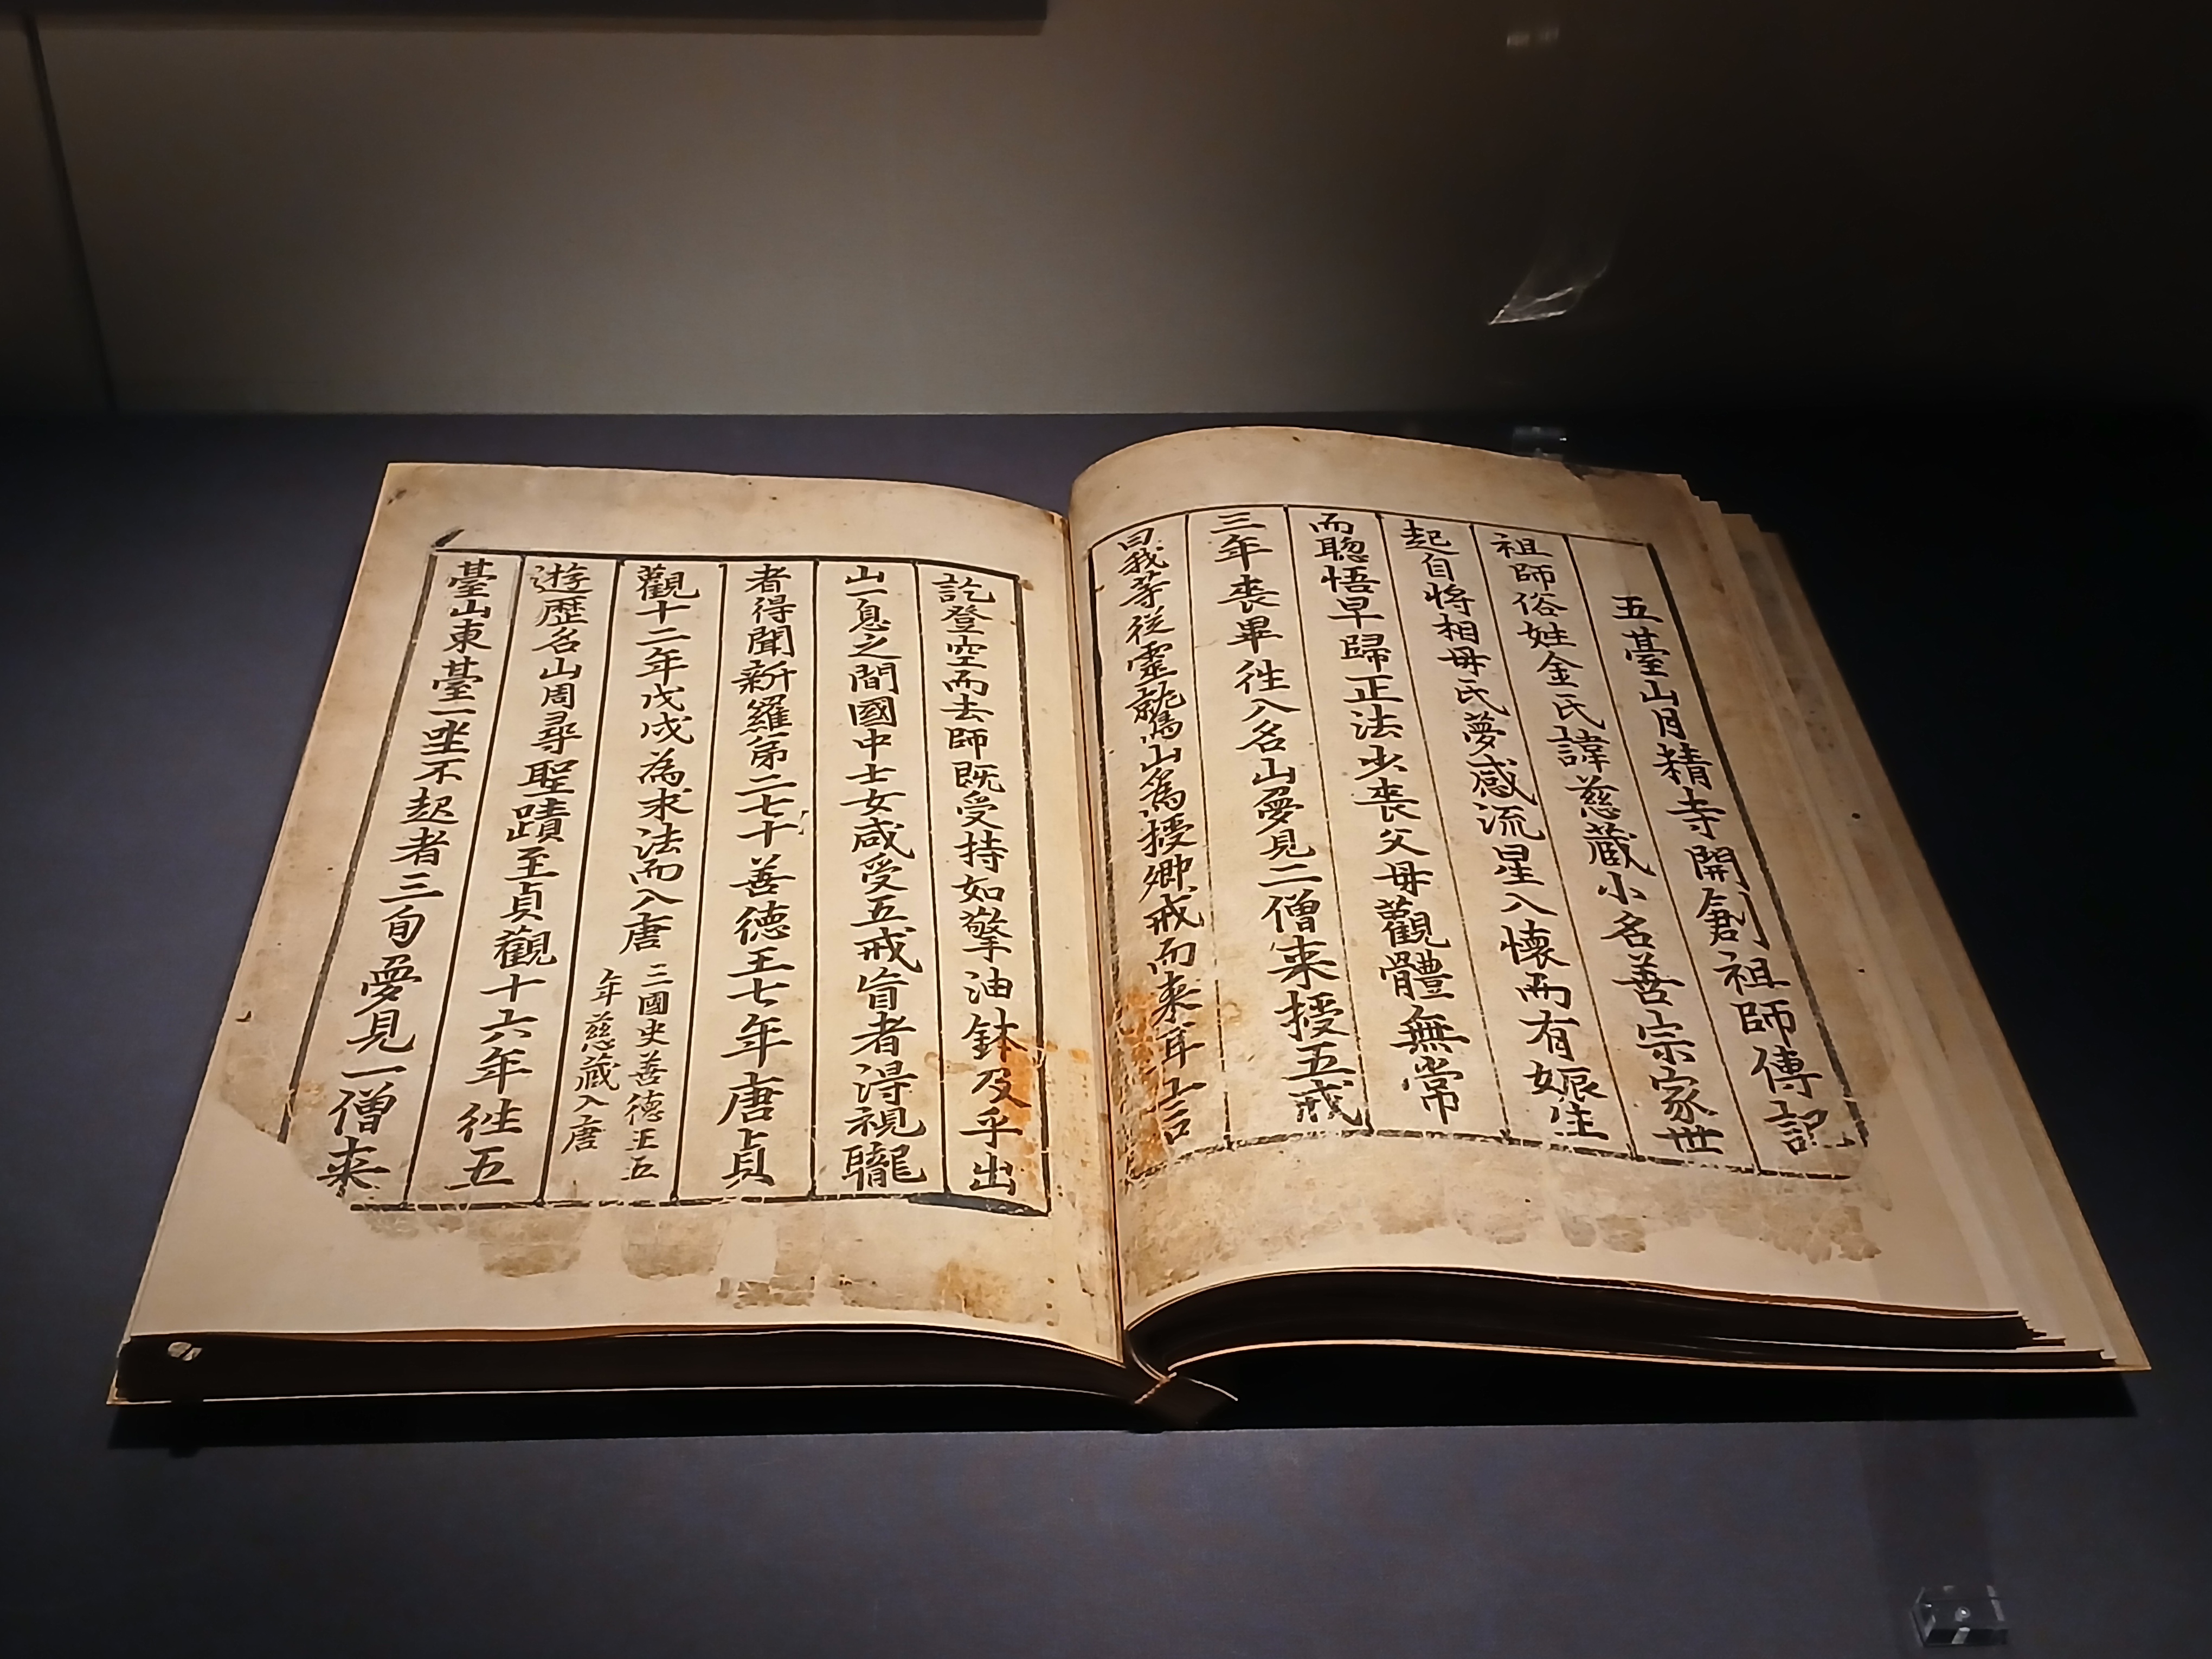 五臺山月精寺開創祖師傳記
祖師俗姓金氏諱慈藏小名善宗家世
起自將相母氏夢感流星入懷而有娠生
而聡悟早歸正法少丧父母觀體無常
三年丧畢徃入名山夢見二僧来授五戒
曰我等従靈鷲山為授卿戒而来耳言
訖登空而去師既受持如擎油鉢及乎出
山一息之間國中士女咸受五戒盲者淂視聾
者得聞新羅第二七十善德王七年唐貞
觀十二年戊戌為求法而入唐
三國史善德王五
年慈藏入唐
遊歴名山周尋聖蹟至貞觀十六年徃五
臺山東臺一坐不起者三旬夢見一僧来